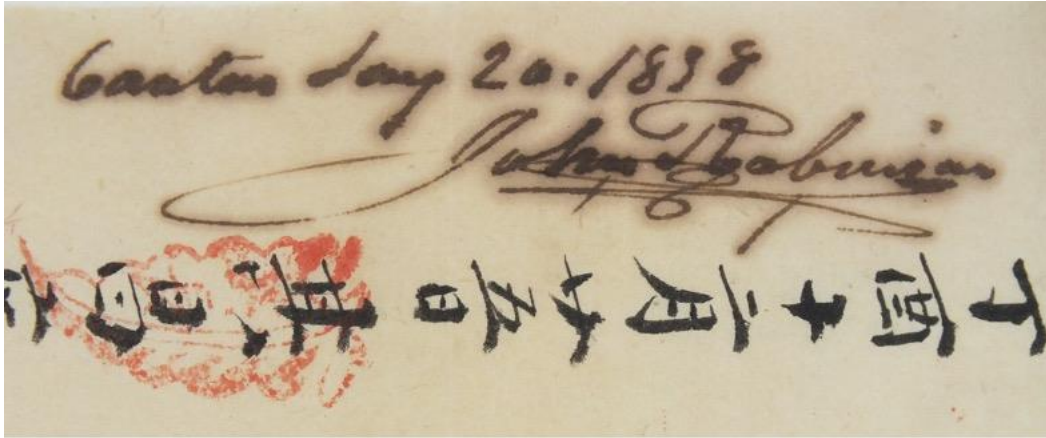 Canton Jany 20. 1838
John Robinson
丁酉十二月廿五日